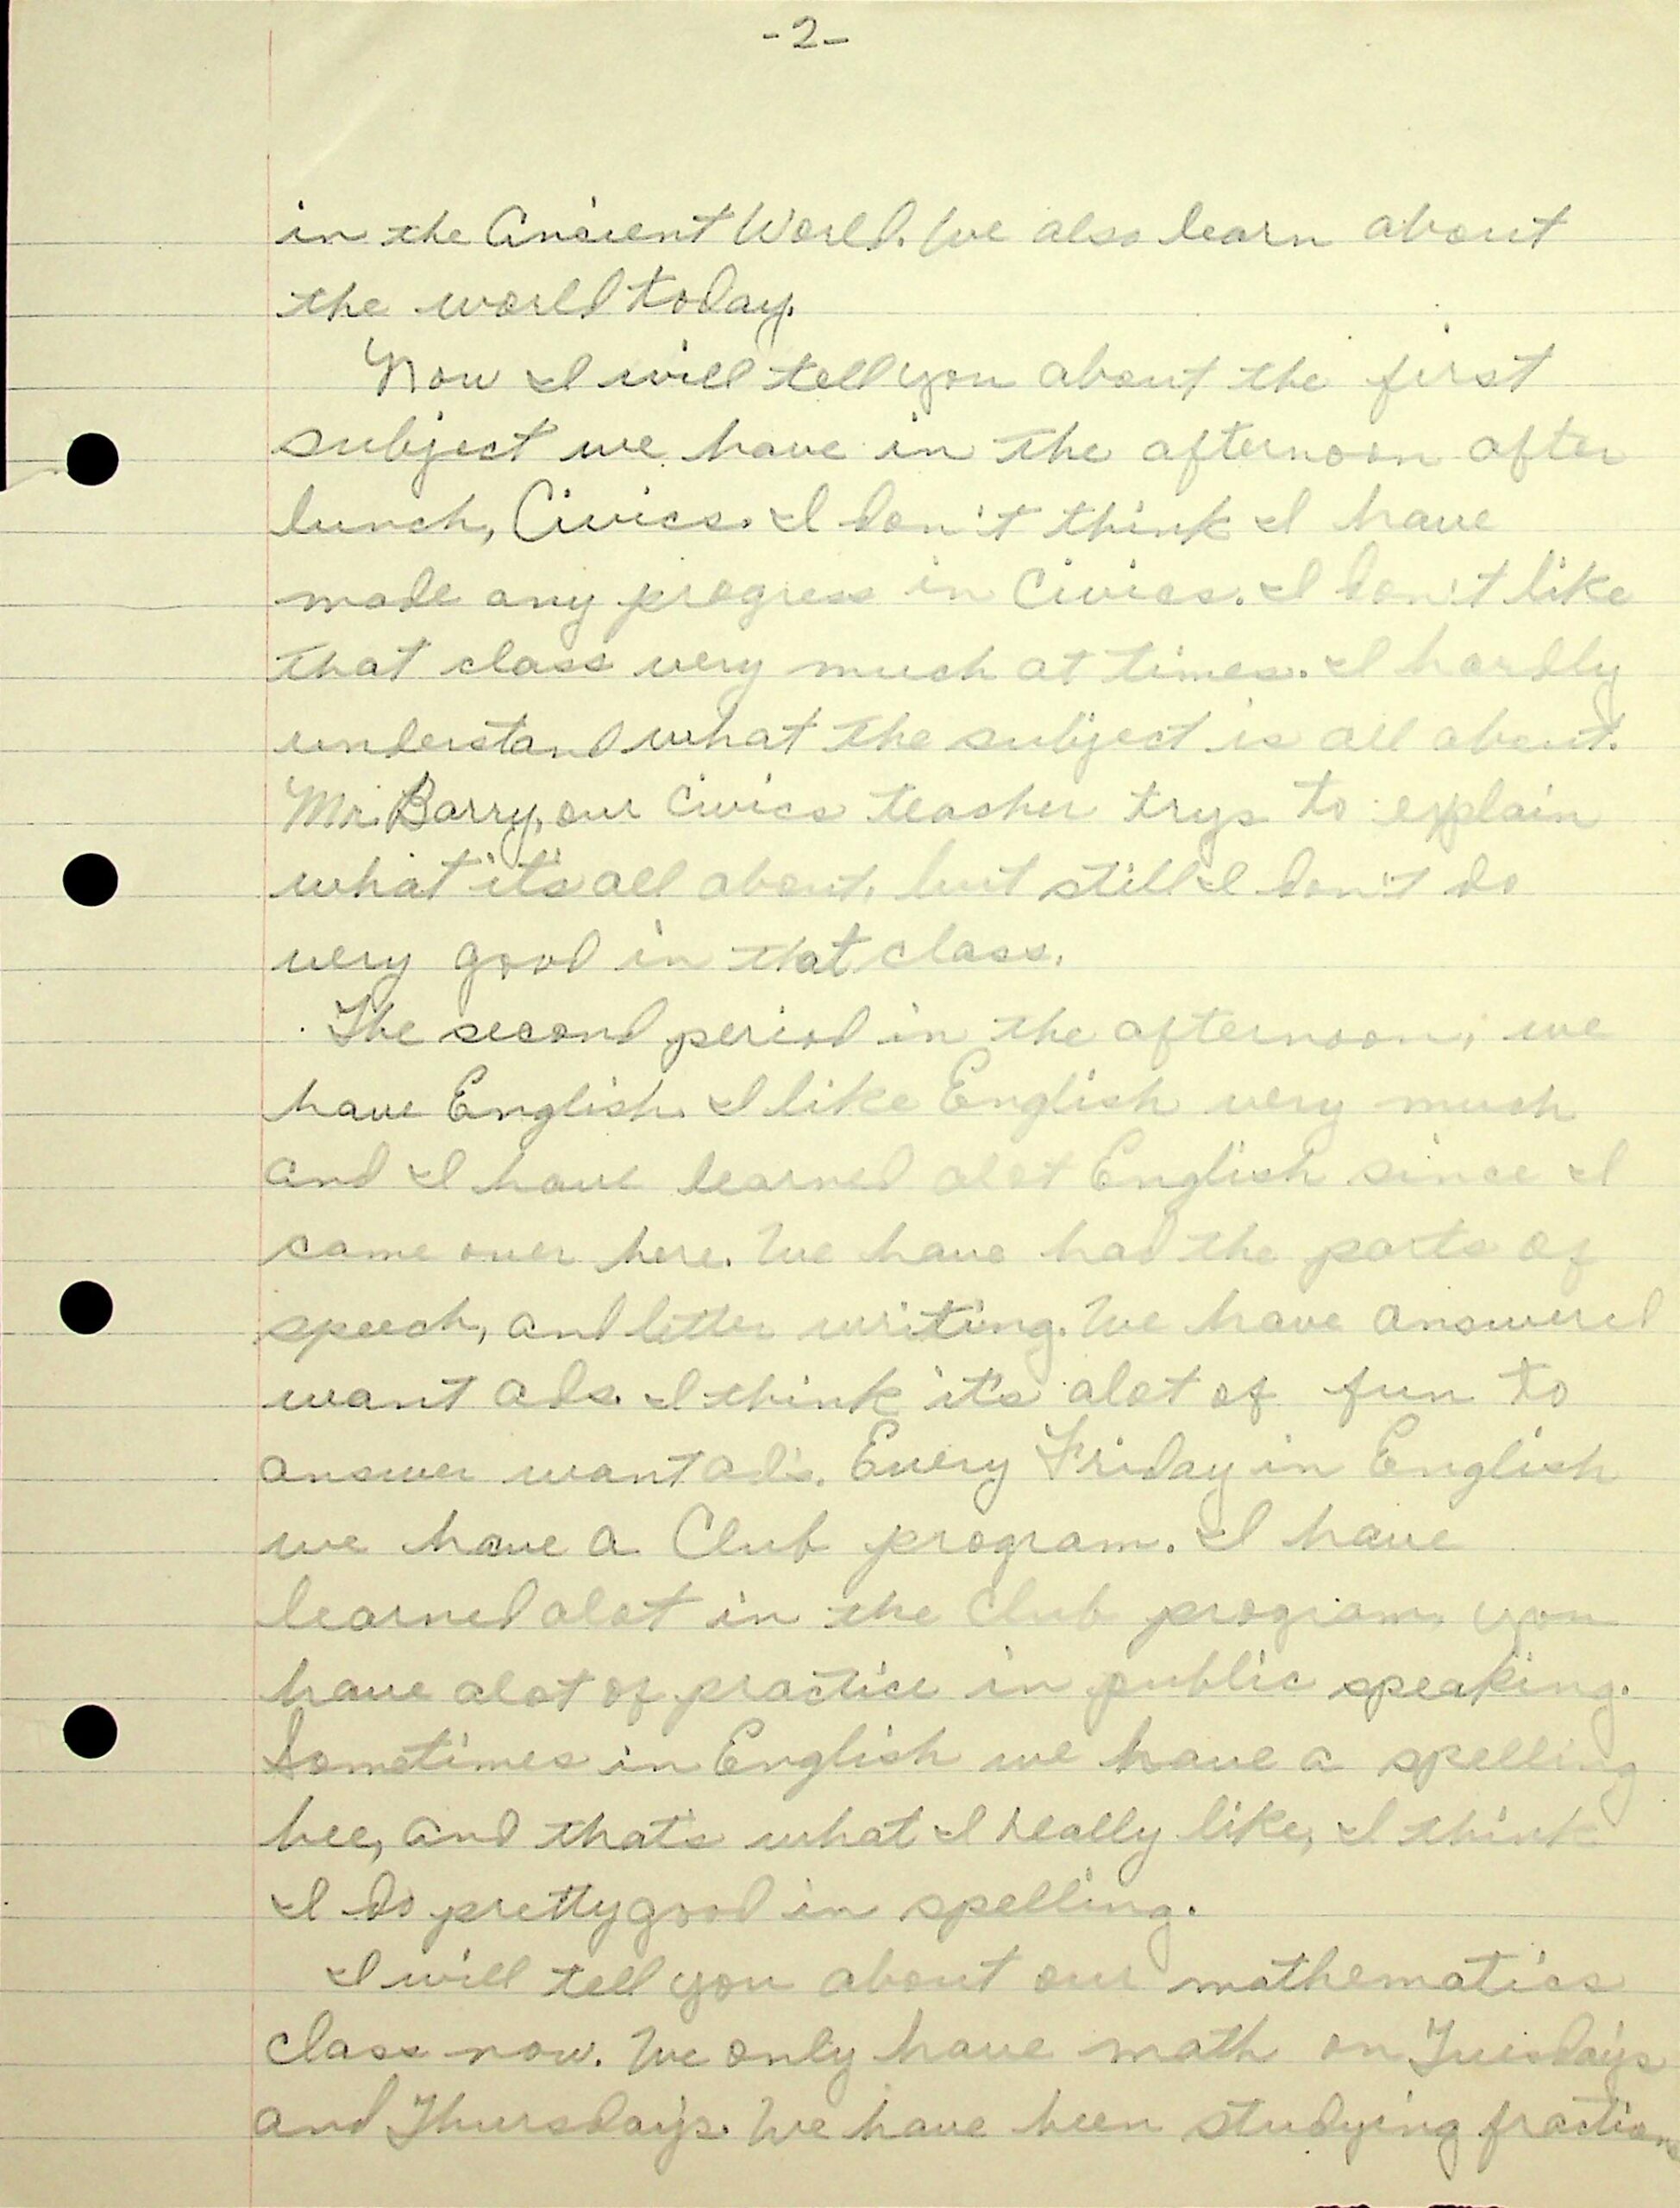 -2-
in the Ancient World. We also learn about
the world today.
Now I will tell you about the first
subject we have in the afternoon after
lunch, Civics. I don't think I have
made any progress in Civics. I don't like
that class very much at times. I hardly
understand what the subject is all about.
Mr. Barry, our Civics teacher trys to explain
what it's all about, but still I don't do
very good in that class.
The second period in the afternoon, we
have English. I like English very much
and I have learned alot English since I
came over here. We have had the parts of
speech, and letter writing. We have answered
want ads. I think it's alot of fun to
answer want ad's. Every Friday in English
we have a Club program. I have
learned alot in the Club program, you
have alot of practice in public speaking.
Sometimes in English we have a spelling
bee, and that's what I really like, I think
I do pretty good in spelling.
I will tell you about our mathematics
class now. We only have math on Tuesday's
and Thursday's. We have been studying fractions